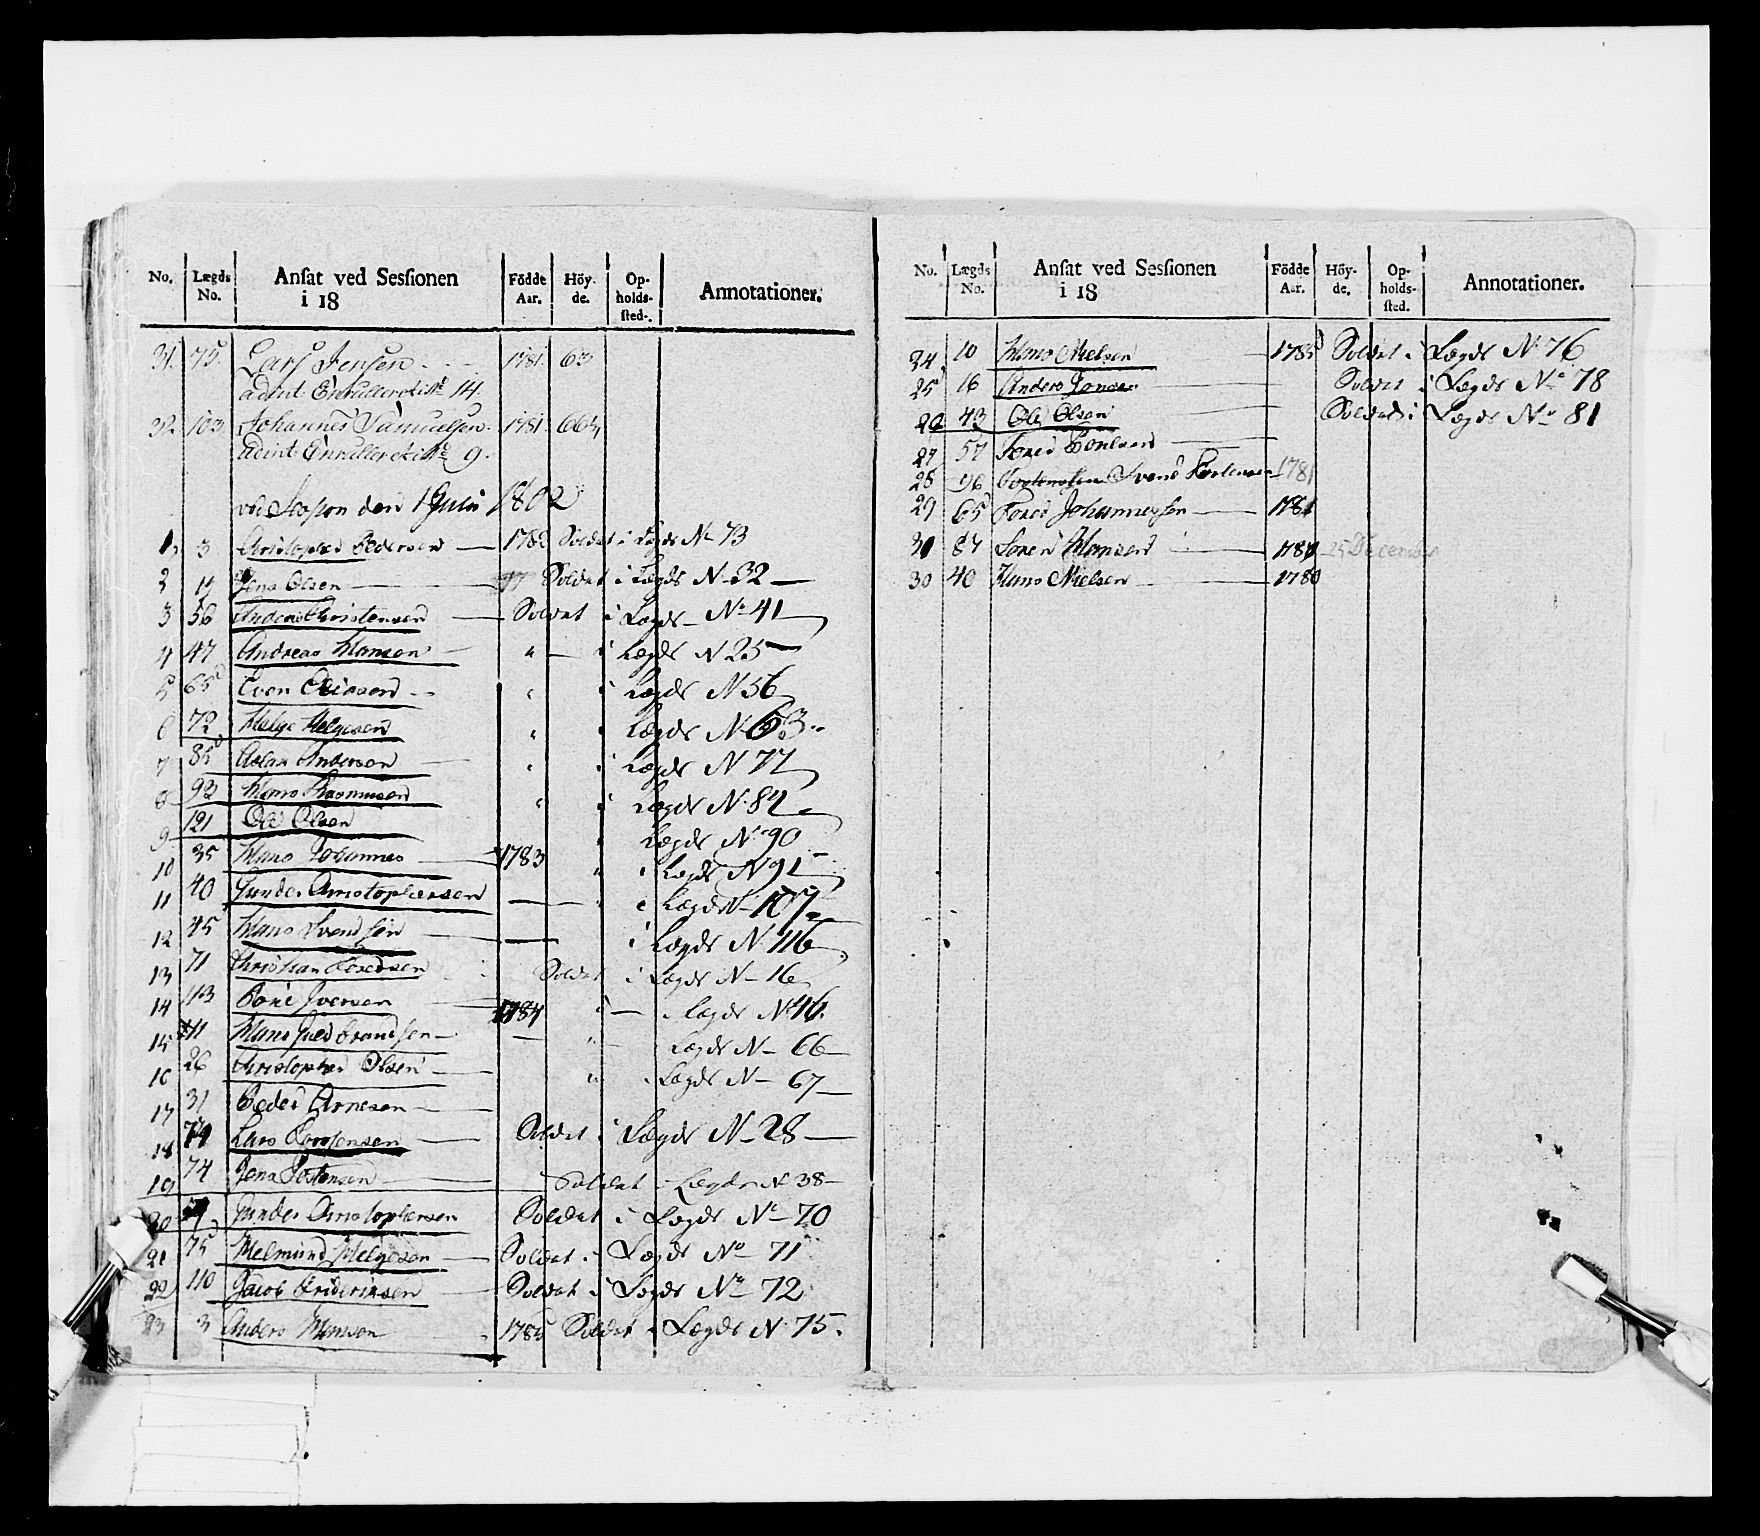 No. Lægds No. Ansat ved Sessionen i 18 Födde Aar. Höyde. Opholdssted. Annotationer.
31. 75. Lars Jensen 1781. 63
adint Enrulleret No 14.
32. 103 Johannes Samuelsen 1781. 66½
adint Enrulleret No 9.
ved Session den 1 Juli 1802
1. 3 Christopher Pedersen 1782 Soldat i Lægds No 73
2 Jens Olsen Soldat i Lægds N 32
3 56 Anders Christensen Soldat i Lægds No 41
4 47 Andreas Hansen " i Lægds N 25
5 65 Even " i Lægds N 56
6 72 Helge Helgesen " i Lægds N 63
7 85 Aslak Andersen " i Lægds N 77
8 92 Hans Rasmusen " i Lægds N 84
9 121 Ole Olsen " Lægds No 90
10 35 Hans Johannes 1783 " i Lægds N 91
11 40 Gunder Christophersen " i Lægds N 107
12 45 Hans Svendsen i Lægds N 116
13 71 Christian Soldat i Lægds N 16
14 113 Iversen 1784 " Lægds No 46.
15 11 Hans " Lægds N 66
16 26 Christopher Olsen " Lægds N 67
17 31 Peder Arnesen
18 74 Lars Soldat i Lægds N 28
19 74 Jens Soldat Lægds N 38
20 Gunder Christophersen Soldat i Lægds No 70
21 75 Helmund Helgesen Soldat i Lægds No 71
22 110 Jacob Frideriksen Soldat i Lægds No 72
23 3 Anders Hansen 1785 Soldat i Lægds N 75.
No. Lægds No. Ansat ved Sessionen i 18 Födde Aar. Höyde. Opholdssted. Annotationer.
24 10 Hans Nielsen 1785 Soldat i Lægds No 76
25 16 Anders Jonsen Soldat i Lægds No 78
26 43 Ole Olsen Soldat i Lægds No 81
27 57
28 96 Svend 1781
29 65 Johannesen 1781
31 87 Søren Hansen 25 December
30 40 Hans Nielsen 1780